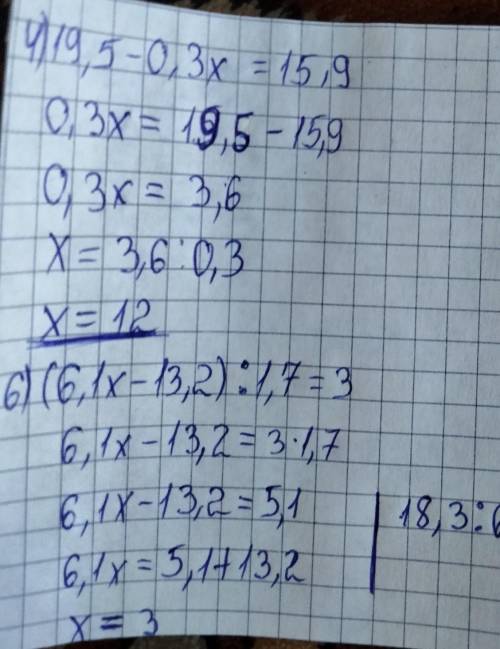 4) 19,5 - 0,3x = 15,9
0,3x = 19,5 - 15,9
0,3x = 3,6
x = 3,6 : 0,3
x = 12
6) (6,1x - 13,2) : 1,7 = 3
6,1x - 13,2 = 3 · 1,7
6,1x - 13,2 = 5,1
18,3 : 6
6,1x = 5,1 + 13,2
x = 3